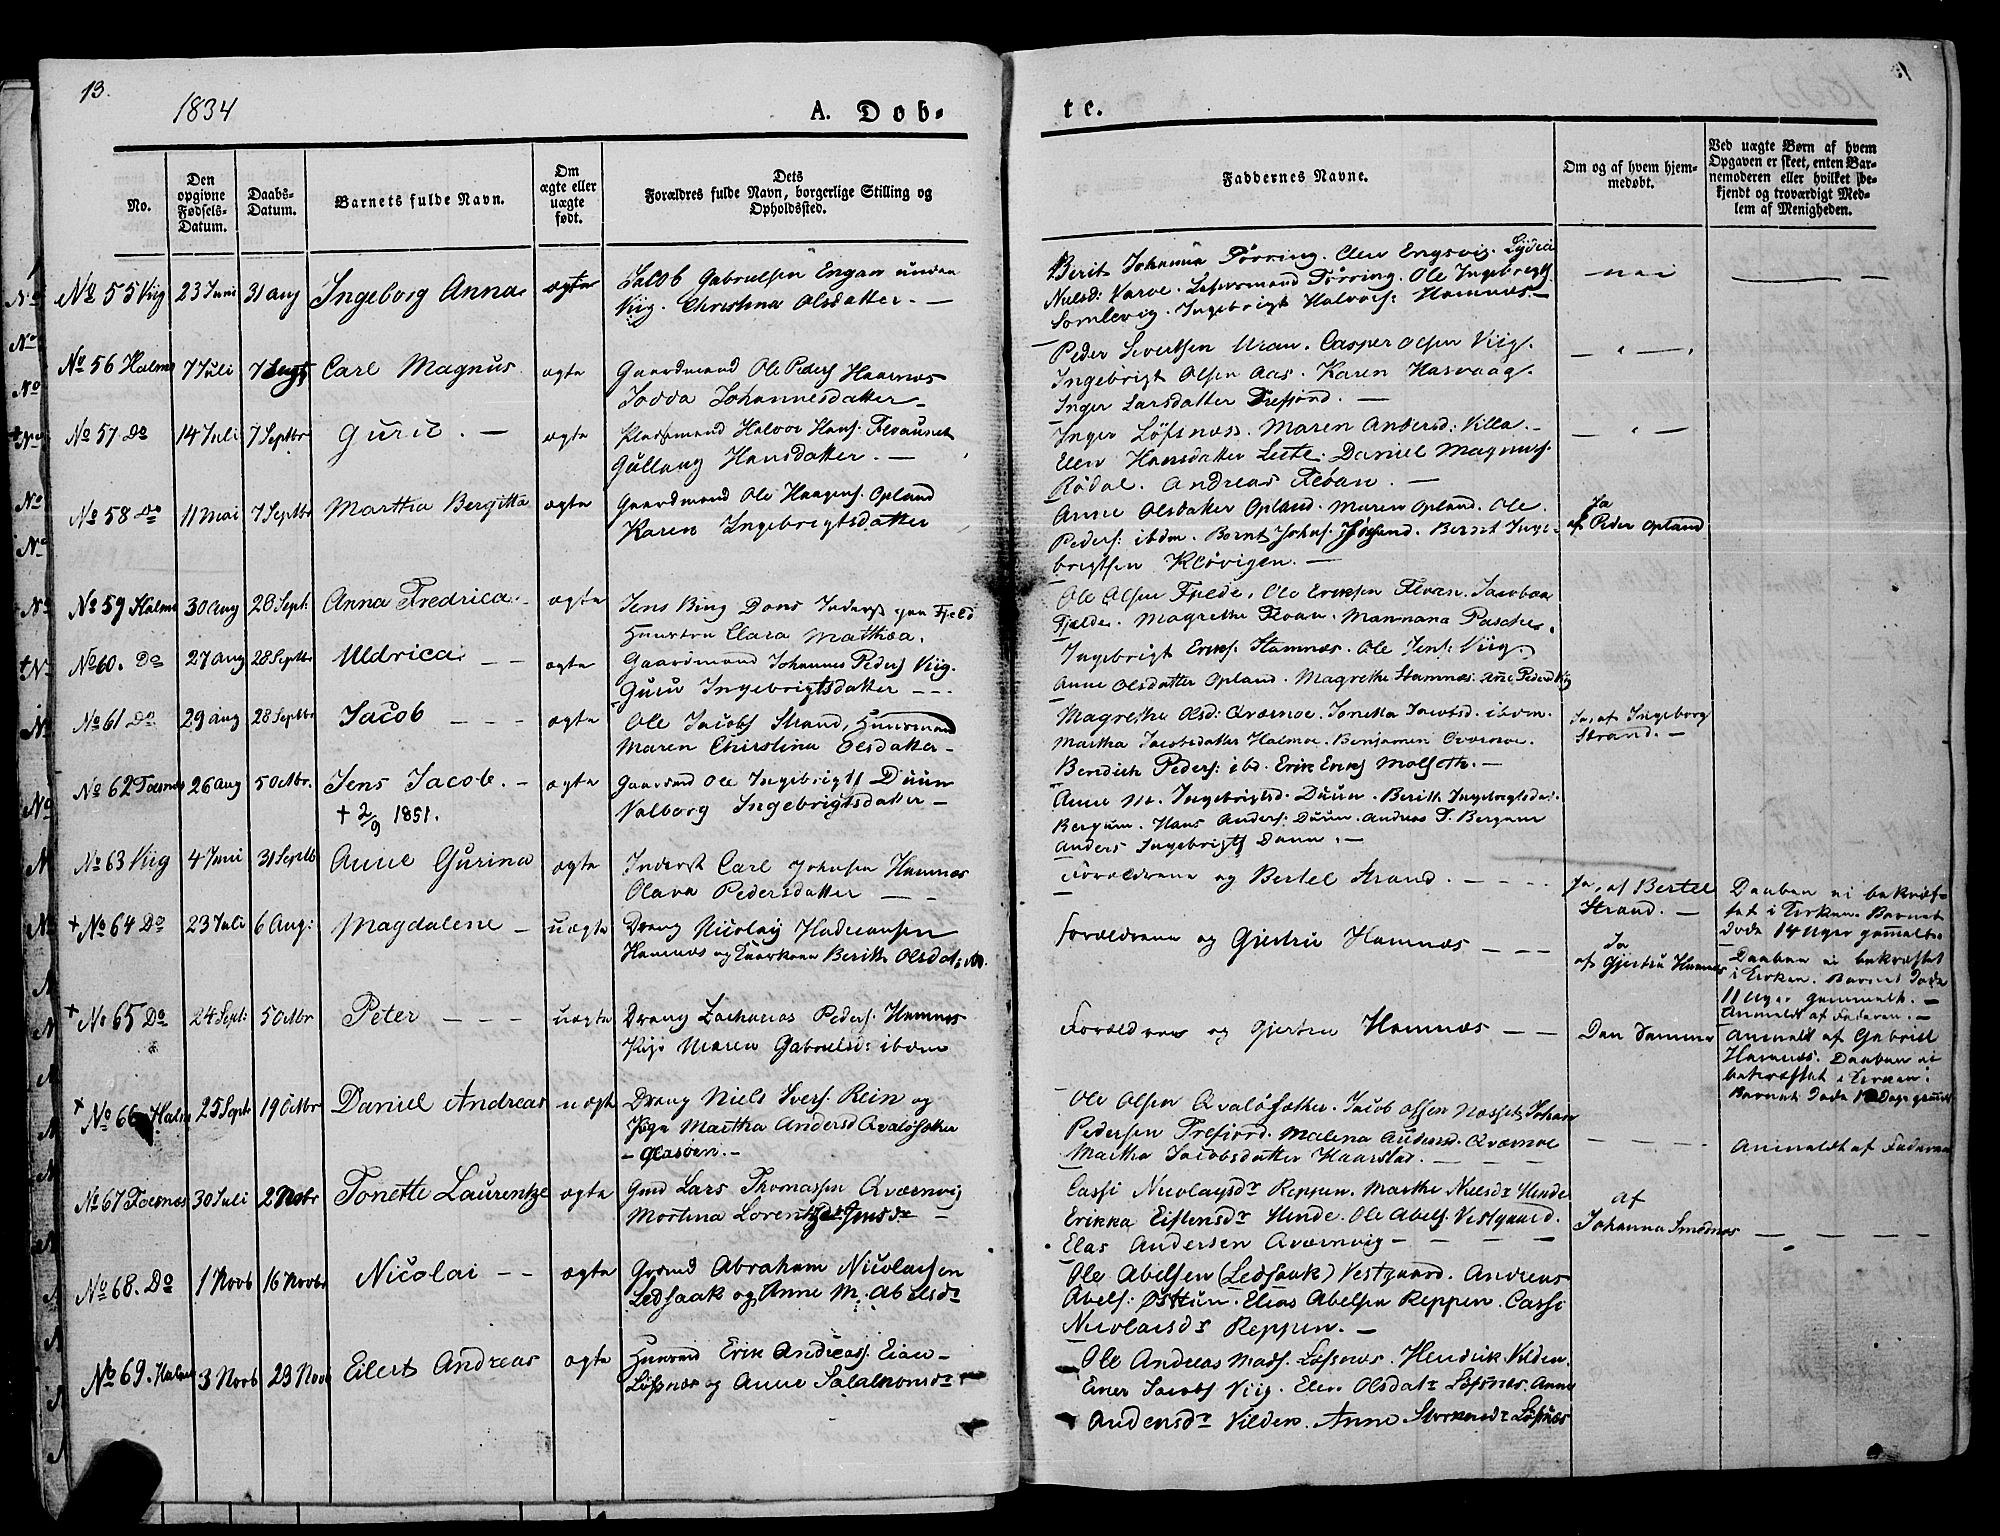 13.
1834
A. Døb-
te.
No.
Den opgivne Fødsels-Datum.
Daabs-Datum.
Barnets fulde Navn.
Om ægte eller uægte født.
Dets
Forældres fulde Navn, borgerlige Stilling og
Opholdssted.
Faddernes Navne.
Om og af hvem hjem-
medøbt.
Ved uægte Børn af hvem
Opgaven er skeet, enten Bar-
nemoderen eller hvilket be-
kjendt og troværdigt Med-
lem af Menigheden.
No 55 Viig 23 Juni 31 aug Ingeborg Anna ægte
Jacob Gabrielsen Engan
Viig. Christina Olsdatter. —
Berit Johanna Tørring. Elen Engsvig.
Nielsd: Varøe. Tørring. Ole Ingebrigts
Ingebrigt Halvors: Hamnæs —
— nei
No 56 Halm 7 Juli 7 Carl Magnus ægte
Gaardmand Ole Peders Haarnæs
Johannesdatter —
Peder Sivertsen Uran. Casper Olsen Viig.
Ingebrigt Olsen Aas. Karen Hasvaag.
Inger Larsdatter Trefjord. —
No 57 Do 14 Juli 7 Septbr Guric. — ægte
Pladsmand Halvor Hans:
Gullaug Hansdatter. —
Inger Løfsnæs. Maren Andersd: Villa. —
Elen Hansdatter Leite. Daniel Magnus
Rødal. Andreas Floan. —
No 58 Do 11 Mai 7 Septbr Martha Bergitta ægte
Gaardmand Ole Haagens. Opland
Karen Ingebrigtsdatter
Anne Olsdatter Opland. Maren Opland. Ole
Peders: ibdm. Bernt Johns: . Bernt Inge-
brigtsen Kløvigen. —
Ja
af Peder Opland
No 59 Halm 30 Aug 28 Sept: Anna Fredrica. ægte
Jens Bing Dons Inderst paa Fjeld
Hustru Clara Mathea.
Ole Olsen Fjelde. Ole Eriksen Floan. Jacobea
Fjelde. Magrethe Floan. Marinana Pasche.
No 60. Do 27 aug 28 Septbr Uldrica — — ægte
Gaardmand Johannes Peders Viig.
Guru Ingebrigtsdatter — — —
Ingebrigt Eriks: Hamnæs. Ole Jens: Viig.
Anne Olsdatter Opland. Magrethe Hamnæs.
No 61 Do 29 aug 28 Septbr Jacob — — — ægte
Ole Jacobs Strand, Huusmand
Maren Christina Olsdatter —
Magrethe Olsd: Qværnøe. Jonetta Jacobsd. ibdm.
Martha Jacobsdatter Halmøe. Benjamin Qværnøe.
Bendich Peders: ibd. Erik Eriks Molseth. —
Ja, af Ingeborg
Strand. —
No 62 Foesnæs 26 aug 5 Octbr. Jens Jacob. — ægte
+ 2/9 1851.
Gaarmd Ole Ingebrigts Duun
Valborg Ingebrigtsdatter —
Anne M. Ingebrigtsd. Duun. Berith Ingebrigtsdat.
Bergum. Hans Anders: Duun. Andreas T. Bergum
Anders Ingebrigts Duun. —
No 63 Viig 4 Juni 31 Septb Anne Gurina ægte
Inderst Carl Johnsen Hamnæs
Olava Pedersdatter — —
Forældrene og Bertel Strand. — — —
Ja, af Bertel
Strand. —
+ No 64 Do 23 Juli 6 Aug: Magdalene — uægte
Dreng Nicolay Hadreansen
Hamnæs og Berith
Forældrene og Gjertru Hamnæs — — —
Ja
af Gjertru Hamnæs
Daaben ei bekræf-
tet i Kirken. Barnet
døde 14 Uger gammelt.
+ No 65 Do 24 Sept: 5 Octbr Peter — — — uægte
Dreng Zacharias Peders: Hamnæs
Pige Maren Gabrielsd: ibdm
Forældrene og Gjertru Hamnæs — —
Den Samme
Daaben ei bekræftet
i Kirken. Barnet døde
11 Uger gammelt. —
Anmeldt af Faderen. —
Anmeldt af Gabriel
Hamnæs. Daaben ei
bekræftet i Kirken.
+ No 66 Halm 25 Sept: 19 Octbr Daniel Andreas uægte
Dreng Niels Ivers. Rein og
Pige Martha Andersd Qvaløsæter
— Glasøen. —
Ole Olsen Qvaløsæther. Jacob Olsen Næsset. Johan
Pedersen Trefjord. Malena Andersd. Qværnøe
Martha Jacobsdatter Haarstad. — — —
Anmeldt af Faderen
No 67 Foesnæs 30 Juli 2 Novbr Tonette Laurentze ægte
Gmd Lars Thomassen Qværnvig
Martina
Cassi Nicolaysdr Reppen. Marthe Nielsdr Hende
Erikka Eistensdr Hende. Ole Abels. Vestgaard.
Elas Andersen Qværnvig — — — —
af
Johanna Smednæs
No 68. Do 1 Novb 16 Novbr Nicolai — — ægte
Abraham Nicolaisen
Ledsaak og Anne M. Abelsdr
Ole Abelsen (Ledsaak) Vestgaard. Andreas
Abels: . Elias Abelsen Reppen. Cassi
Nicolaisdr Reppen. —
No 69. Halm 3 Novb 23 Novb Eilert Andreas ægte
Huusmd Erik Andreass. Eian —
Løfsnæs og Anne Salamonsdr —
Ole Andreas Mads. Løfsnæs. Hendrik Vilden.
Einer Jacobs Viig. Elen Olsdatr Løfsnæs. Anne
Andersdr Vilden. Anne Løfsnæs